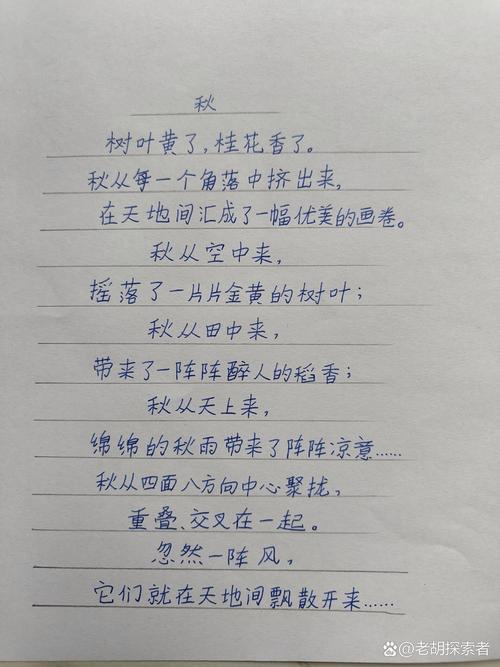 秋
树叶黄了,桂花香了。
秋从每一个角落中挤出来,
在天地间汇成了一幅优美的画卷。
秋从空中来,
摇落了一片片金黄的树叶;
秋从田中来,
带来了一阵阵醉人的稻香;
秋从天上来,
绵绵的秋雨带来了阵阵凉意……
秋从四面八方向中心聚拢,
重叠、交叉在一起。
忽然一阵风,
它们就在天地间飘散开来……
@老胡探索者